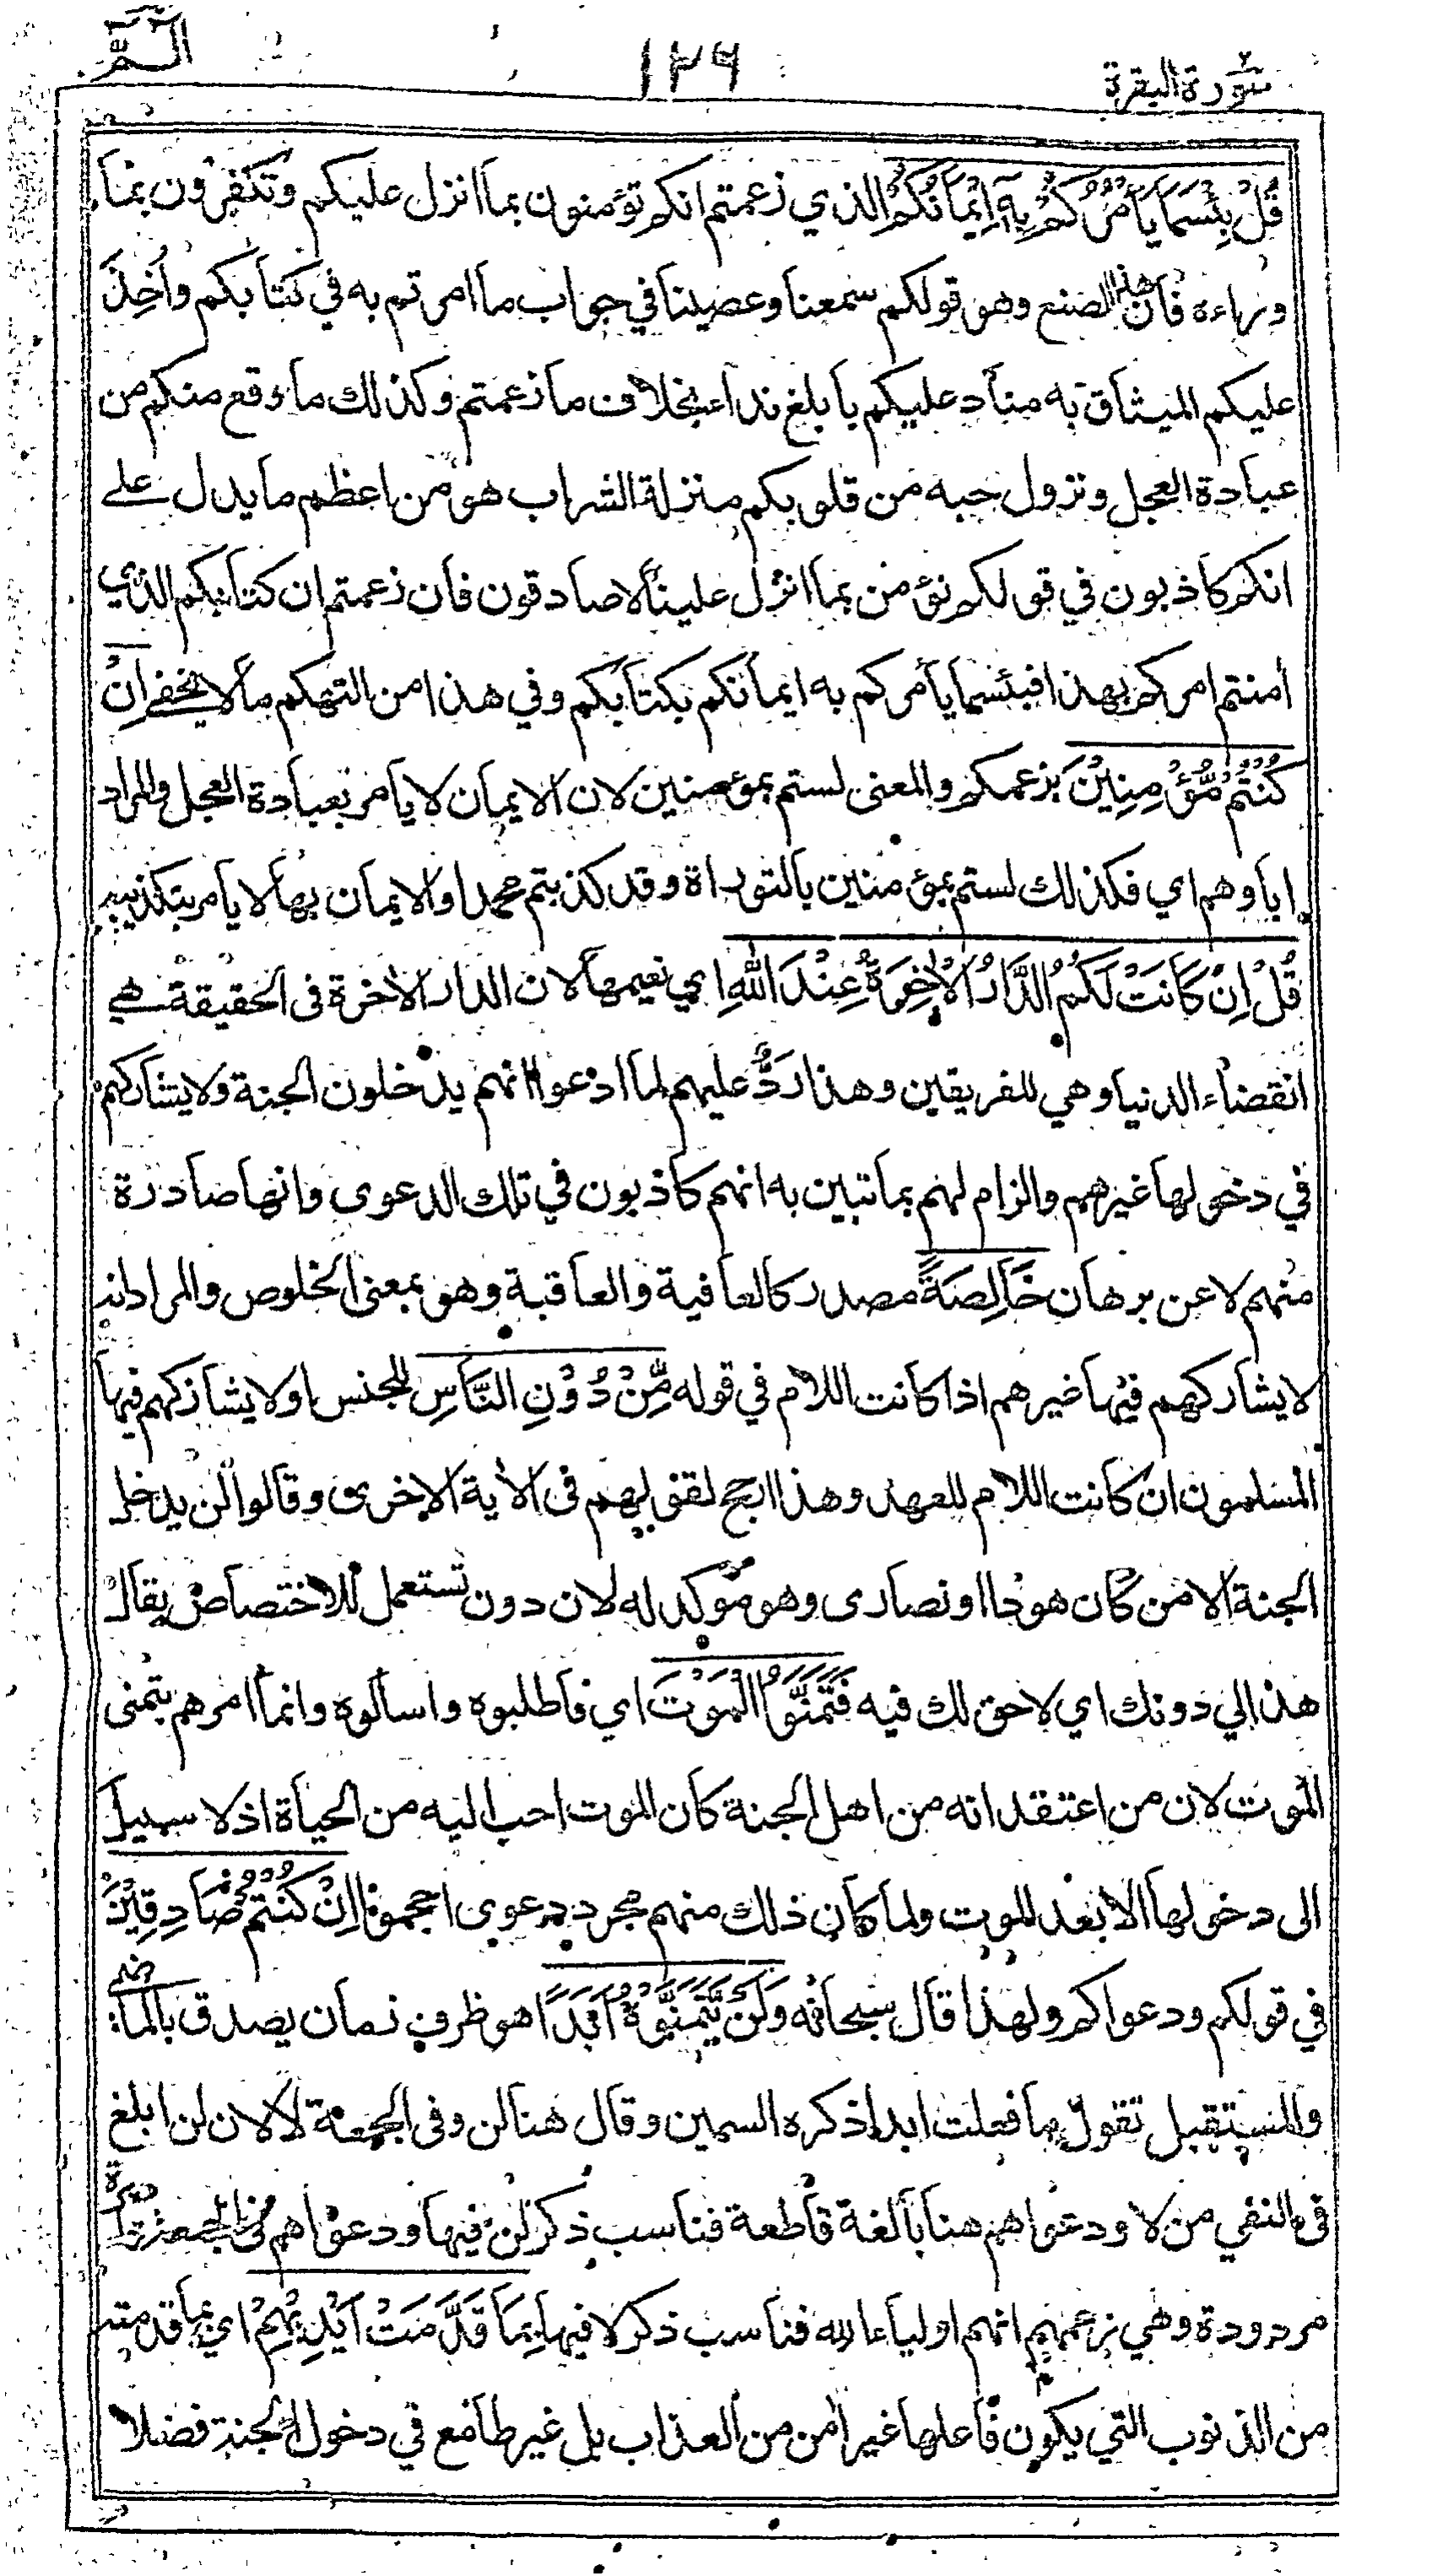 سورة البقرة ١٢٦ الٓمّ
قُلْ بِئْسَمَا يَأْمُرُكُمْ بِهٖٓ اِيْمَانُكُمْ الذي زعمتم انكم تؤمنون بما انزل عليكم وتكفرون بما
وراءه فان هذا الصنع وهو قولكم سمعنا وعصينا في جواب ما امرتم به في كتابكم وأخذ
عليكم الميثاق به مناد عليكم بابلغ نداء بخلاف ما زعمتم وكذلك ما وقع منكم من
عبادة العجل ونزول حبه من قلوبكم منزلة الشراب هو من اعظم ما يدل على
انكم كاذبون في قولكم نؤمن بما انزل علينا لا صادقون فان زعمتم ان كتابكم الذي
امنتم امركم بهذا فبئسما يأمركم به ايمانكم بكتابكم وفي هذا من التهكم ما لا يخفى اِنْ
كُنْتُمْ مُّؤْمِنِيْنَ بزعمكم والمعنى لستم بمؤمنين لان الايمان لا يامر بعبادة العجل والمراد
اباؤهم اي فكذلك لستم بمؤمنين بالتوراة وقد كذبتم محمدا والايمان بها لا يأمر بتكذيبه
قُلْ اِنْ كَانَتْ لَكُمُ الدَّارُ الْاٰخِرَةُ عِنْدَ اللّٰهِ اي نعيمها لان الدار الاخرة فى الحقيقة هي
انقضاء الدنيا وهي للفريقين وهذا رَدٌّ عليهم لما ادعوا انهم يدخلون الجنة ولا يشاركهم
في دخولها غيرهم والزام لهم بما تبين به انهم كاذبون في تلك الدعوى وانها صادرة
منهم لا عن برهان خَالِصَةً مصدر كالعافية والعاقبة وهو بمعنى الخلوص والمراد انه
لا يشاركهم فيها غيرهم اذا كانت اللام في قوله مِّنْ دُوْنِ النَّاسِ للجنس او لا يشاركهم فيها
المسلمون ان كانت اللام للعهد وهذا ارجح لقولهم فى الأية الاخرى وقالوا لن يدخل
الجنة الا من كان هودا او نصارى وهو مؤكد له لان دون تستعمل للاختصاص يقال
هذا لي دونك اي لا حق لك فيه فَتَمَنَّوُا الْمَوْتَ اي فاطلبوه واسألوه وانما امرهم بتمنى
الموت لان من اعتقد انه من اهل الجنة كان الموت احب اليه من الحياة اذ لا سبيل
الى دخولها الا بعد الموت ولما كان ذلك منهم مجرد دعوى احجموا اِنْ كُنْتُمْ صَادِقِيْنَ
في قولكم ودعواكم ولهذا قال سبحانه وَلَنْ يَّتَمَنَّوْهُ اَبَدًا هو ظرف زمان يصدق بالماضي
والمستقبل تقول ما فعلت ابدا ذكره السمين وقال هنا لن وفى الجمعة لا لان لن ابلغ
فى النفي من لا ودعواهم هنا بالغة قاطعة فناسب ذكر لن فيها ودعواهم في الجمعة قاصرة
مردودة وهي زعمهم انهم اولياء لله فناسب ذكر لا فيها بِمَا قَدَّمَتْ اَيْدِيْهِمْ اي بما قدمته
من الذنوب التي يكون فاعلها غير امن من العذاب بل غير طامع في دخول الجنة فضلا